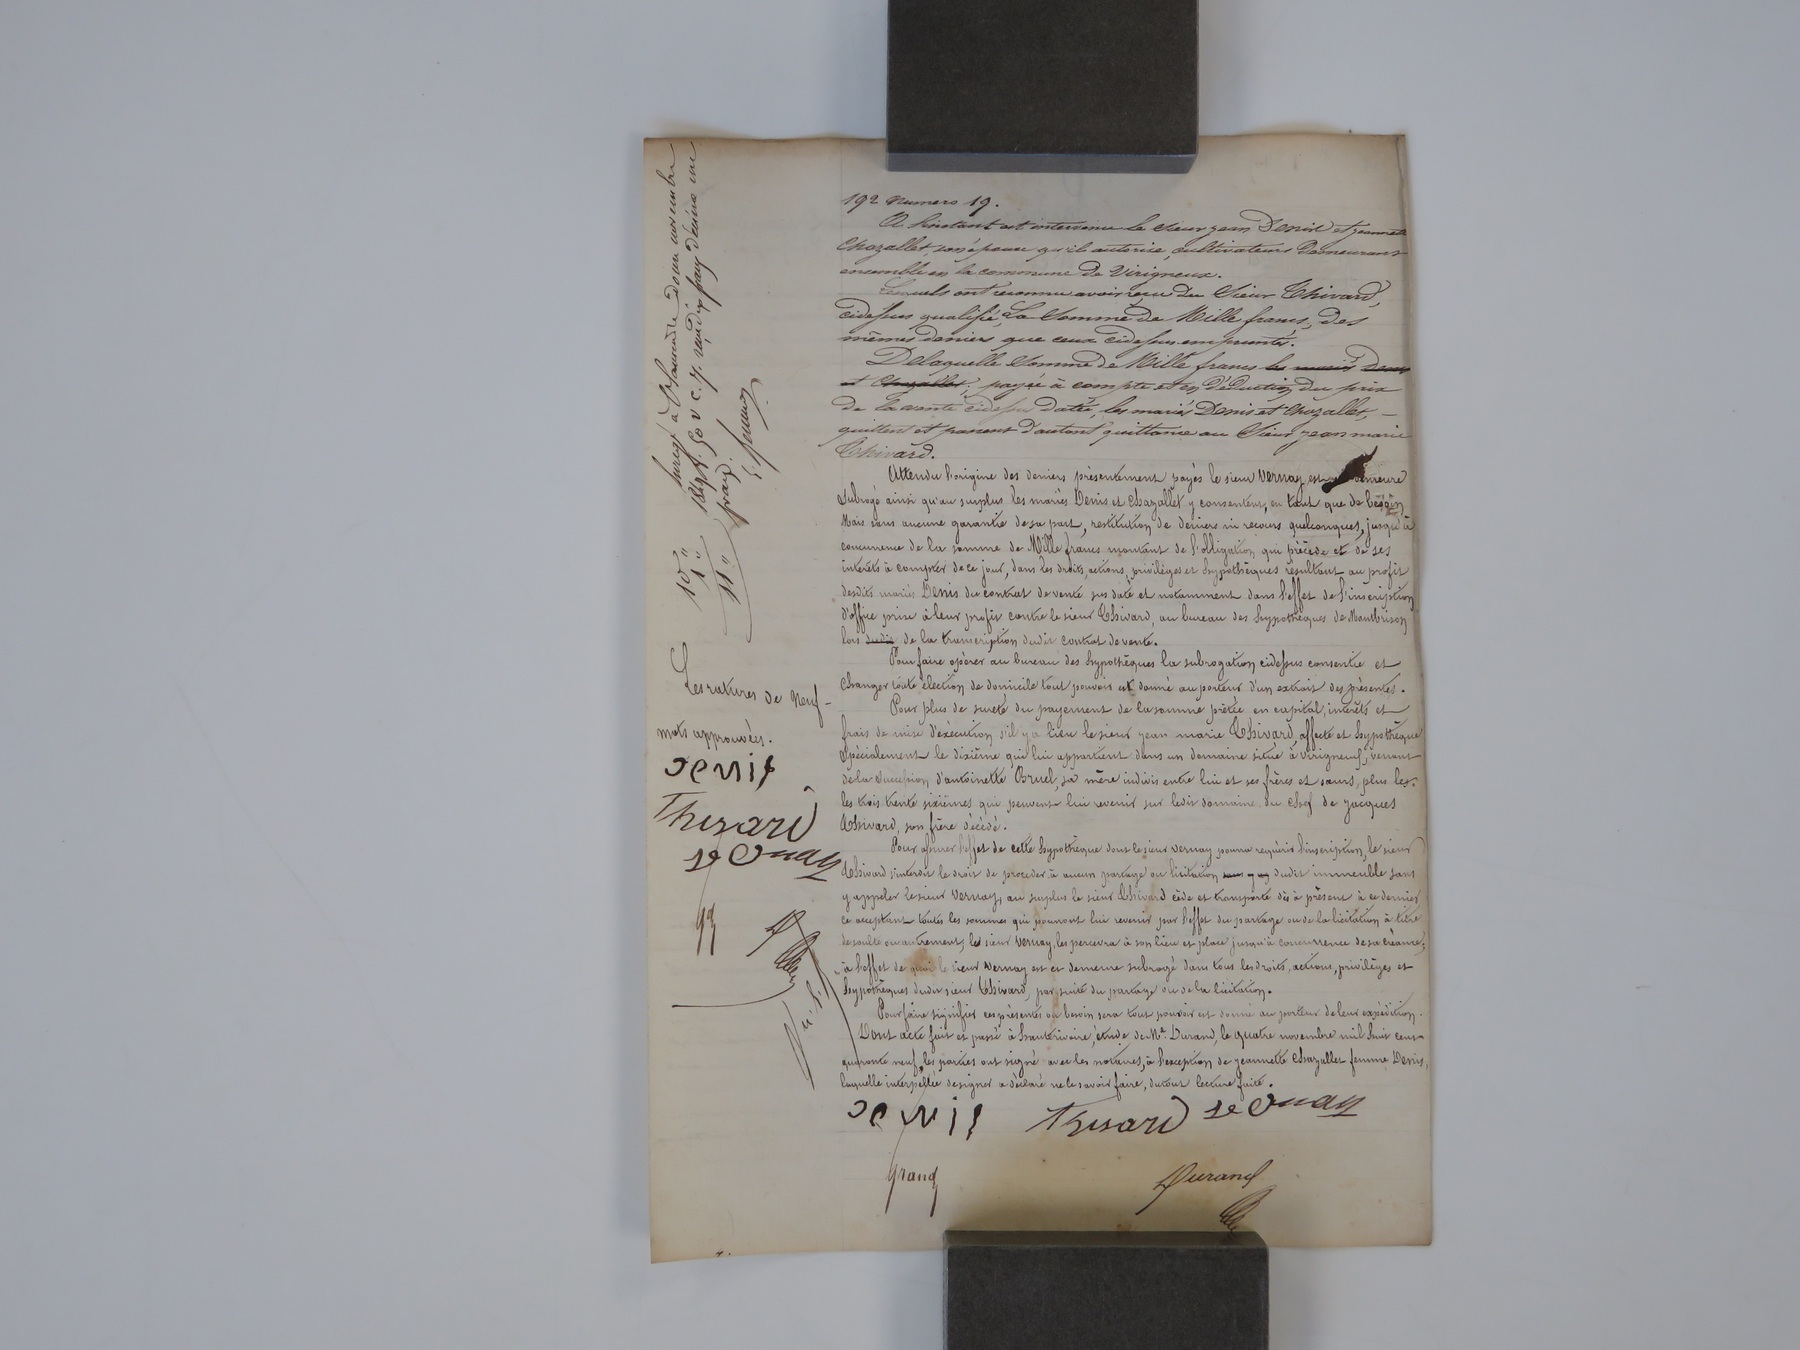 192 Numero 19.
A l'instant est intervenu le Sieur jean Denis et jeannette
Chazallet, son épouse qu'il autorise, cultivateurs Demeurant
ensemble en la commune de Virigneux.
Lesquels ont reconnu avoir reçu du Sieur Thivard,
cidessus qualifié, La Somme de Mille francs, des
mêmes deniers que ceux cidessus empruntés.
De laquelle Somme de Mille francs les mariés Denis
et Chazallet, payée à compte et en déduction du prix
de la vente cidessus datée, les mariés Denis et Chazallet,
quittent et passent d'autant quittance au Sieur jean marie
Thivard.
Attendu l'origine des deniers présentement payés le sieur Vernay est demeure
subrogé ainsi qu'au surplus les mariés Denis et Chazallet y consentent, en tant que de besoin
Mais sans aucune garantie de sa part, restitution de deniers ni recours quelconques, jusqu'à
concurrence de la somme de Mille francs montant de l'obligation qui précède et de ses
intérêts à compter de ce jour, dans les droits, actions, privilèges et hypothèques résultant au profit
desdits mariés Denis du contrat de vente sus daté et notamment dans l'effet de l'inscription
d'office prise à leur profit contre le sieur Thivard, au bureau des hypothèques de Montbrison
lors dudit de la transcription dudit contrat de vente.
Pour faire opérer au bureau des hypothèques la subrogation cidessus consentie et
changer toute élection de domicile tout pouvoir est donné au porteur d'un extrait des présentes.
Pour plus de sureté du payement de la somme prêtée en capital, intérêts et
frais de mise d'exécution s'il y a lieu le sieur jean marie Thivard, affecte et hypothèque
spécialement le dixième qui lui appartient dans un domaine situé à Virigneux, venant
de la succession d'antoinette Bruel, sa mère indivis entre lui et ses frères et sœurs, plus les
les trois trente sixièmes qui peuvent lui revenir sur ledit domaine du chef de jacques
Thivard, son frère décédé.
Pour assurer l'effet de cette hypothèque dont le sieur Vernay pourra requérir l'inscription, le sieur
Thivard s'interdit le droit de procéder à aucun partage ou licitation sans y dudit immeuble sans
y appeler le sieur Vernay, au surplus le sieur Thivard cède et transporte dès à présent à ce dernier
ce acceptant toutes les sommes qui pourront lui revenir par l'effet du partage ou de la licitation à titre
de soulte ou autrement, le sieur Vernay, les percevra à son lieu et place jusqu'à concurrence de sa créance,
à l'effet de quoi le sieur Vernay est et demeure subrogé dans tous les droits, actions, privilèges et
hypothèques dudit sieur Thivard, par suite du partage ou de la licitation.
Pour faire signifier ces présentes ou besoin sera tout pouvoir est donné au porteur de leur expédition.
Dont acte fait et passé à hauterivoire, étude de Me. Durand, le quatre novembre mil huit cent
quarante neuf, les parties ont signé avec les notaires, à l'exception de jeannette Chazallet femme Denis,
laquelle interpellée de signer a déclaré ne le savoir faire, du tout lecture faite.
denis Thivard Ve Ornay
grand Durand
Les ratures de Neuf
mots approuvées.
denis
Thivard
10"
1"
11"